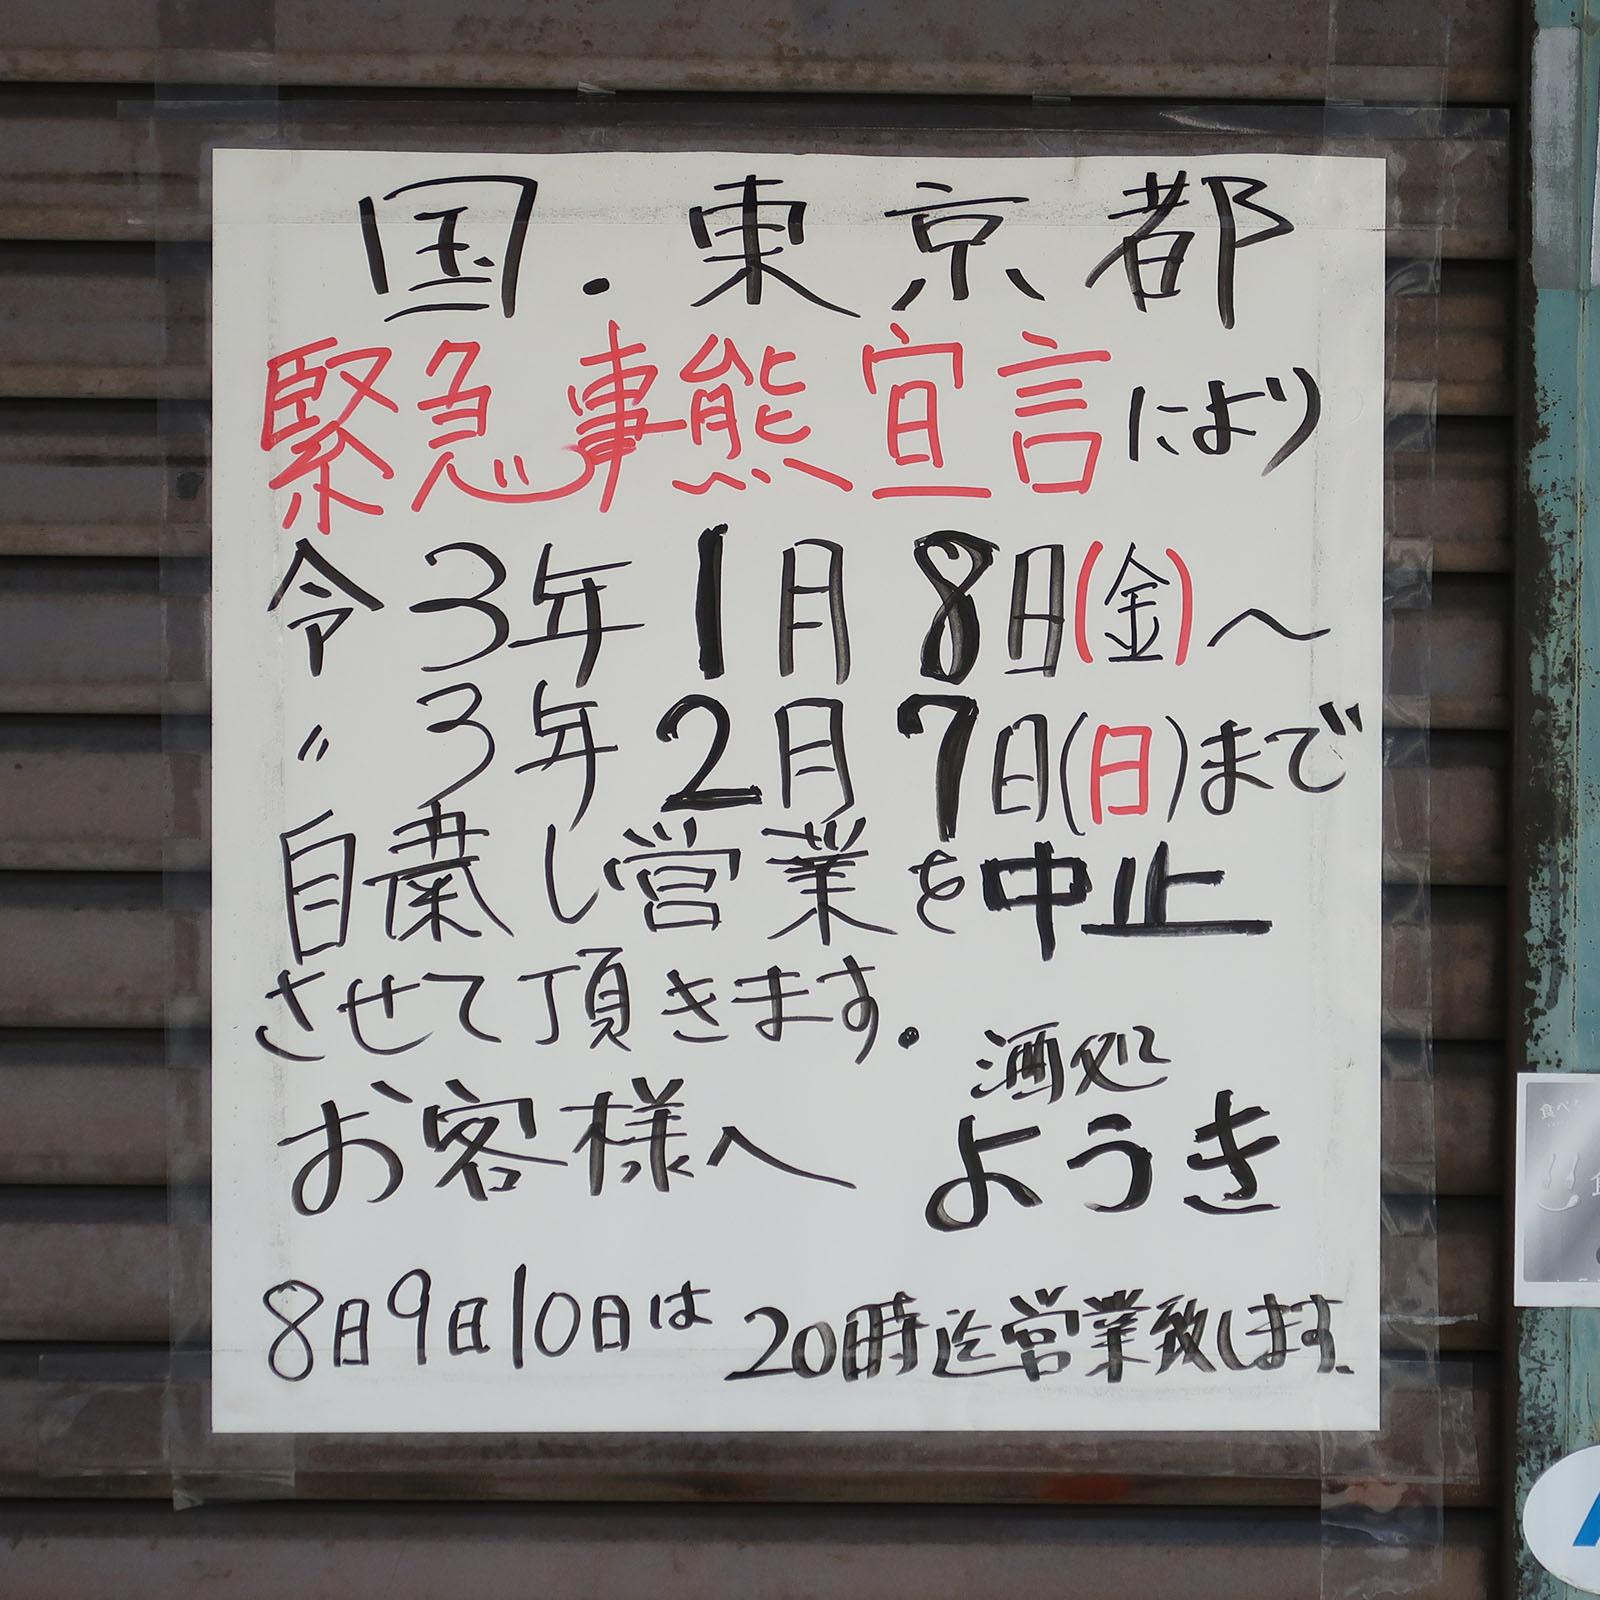 国・東京都
緊急事態宣言により
令3年1月8日(金)～
〃3年2月7日(日)まで
自粛し営業を中止
させて頂きます.
酒処
お客様へ ようき
8日9日10日は 20時迄営業致します.